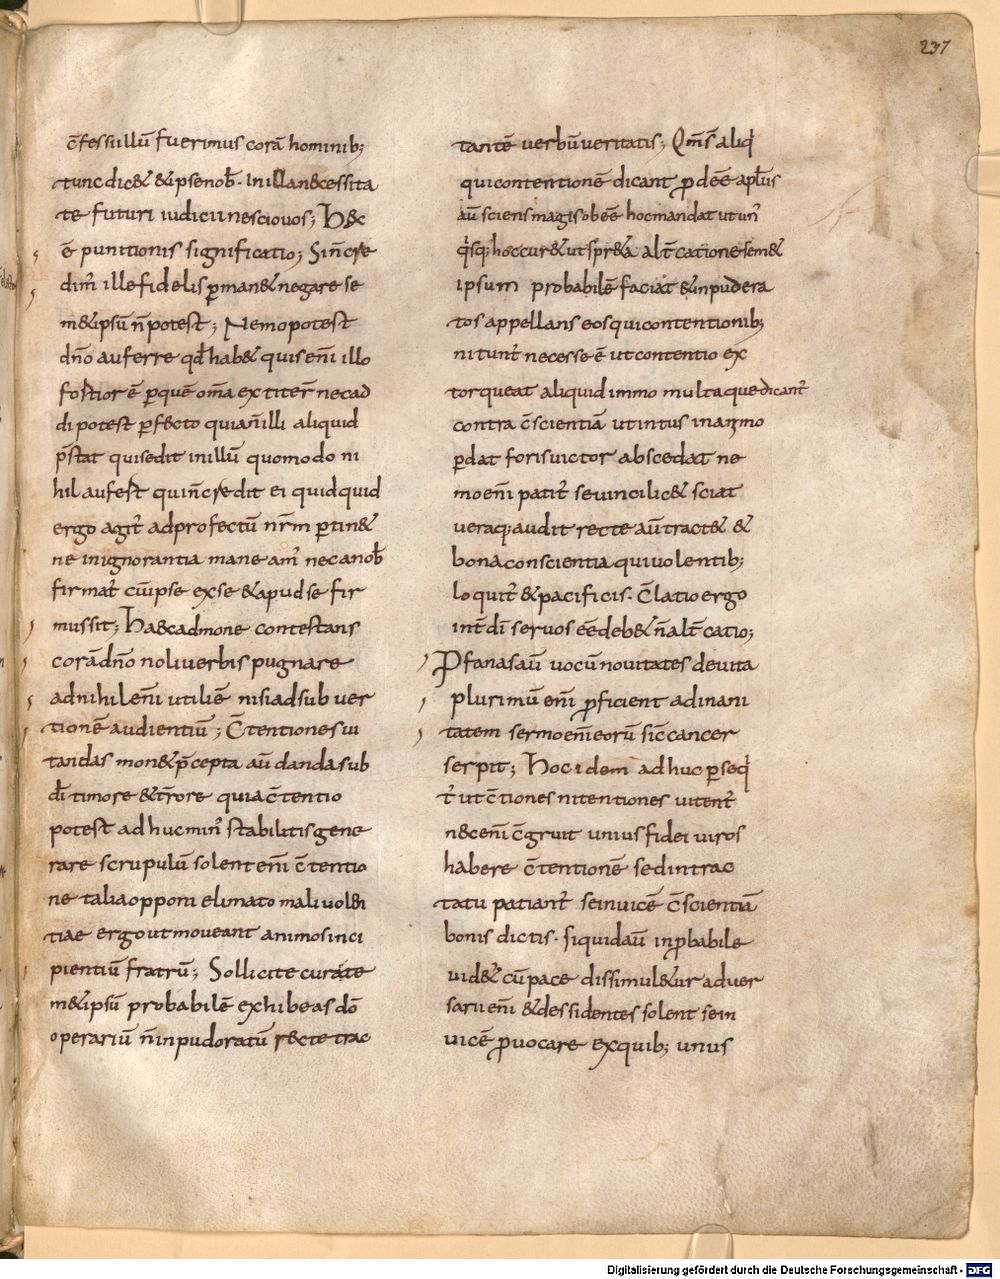 237
c̄fessi illū fuerimus corā hominib;
tunc dic& & ipse nob̄. In illa necessita
te futuri iudicii nescio vos; H&c
ē punitionis significatio; Si n̄ cre
dim̄ ille fidelis ꝑman& negare se
m&ipsū n̄ potest; Nemo potest
dn̄o auferre qd̄ hab& quis eni illo
fortior ē ꝑquē om̄a extiter̄ nec ad
di potest ꝑfecto quia n̄ illi aliquid
p̄stat qui sedit in illū quomodo ni
hil aufert qui n̄ credit ei quidquid
ergo agit̄ ad profectū nr̄m ꝑtin&
ne in ignorantia maneam̄ nec a nob̄
firmat̄ cū ipse ex se & apud se fir
mus sit; Ha&c admone contestans
corā dn̄o noli verbis pugnare
ad nihil eni utili ē nisi ad subver
tionē audientiū; C̄tentiones vi
tandas mon& p̄cepta aū danda sub
dī timore & t̄rore quia c̄tentio
potest adhuc min̄ stabilitis gene
rare scrupulū solent eni c̄tentio
ne talia opponi elimato malivolen
tiae ergo ut moveant animos inci
pientiū fratrū; Sollicite curate
m&ipsū probabilē exhibeas dō
operariū n̄ inpudoratū recte trac
tantē verbū veritatis; Qm̄ s̄ aliq̄
qui contentionē dicant ꝓ dēē aplūs
aū sciens magis obēē hoc mandat ut un̄
q̄sq; hoc cur& ut spr&a alt̄catione sem&
ipsum probabilē faciat & inpudera
tos appellans eos qui contentionib;
nitunt̄ necesse ē ut contentio ex
torqueat aliquid immo multa que dicant̄
contra c̄scientiā ut intus in animo
ꝑdat foris victor abscedat ne
mo eni patit̄ se vinci lic& sciat
vera q; audit recte aū tract& &
bona conscientia qui volentib;
loquit̄ & pacificis. C̄latio ergo
int̄ dī servos ēē deb& n̄ alt̄catio;
Ꝓfanas aū vocū novitates devita
plurimū eni ꝓficient ad inani
tatem sermo eni eorū sic̄ cancer
serpit; Hoc idem adhuc ꝑseq̄
t̄ ut c̄tiones nitentiones vitent̄
nec eni c̄gruit unius fidei viros
habere c̄tentionē sed in trac
tatu patiant̄ se invicē c̄scientiā
bonis dictis. si quid aū inꝓbabile
vid& cū pace dissimul&ur adver
sarii eni & dessidentes solent se in
vicē ꝓvocare ex quib; unus
Digitalisierung gefördert durch die Deutsche Forschungsgemeinschaft - DFG